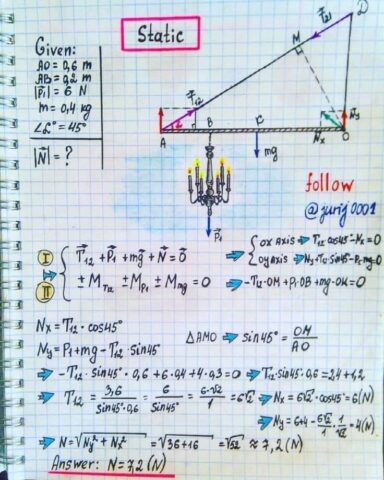 Static
Given:
AO = 0,6 m
AB = 0,2 m
|P₁| = 6 N
m = 0,4 kg
∠L° = 45°
|N̄| = ?
T̄₂₁
D
M
T̄₁₂
N̄y
Nx
A
B
C
O
mg
P̄₁
follow
@jurij0001
I
T̄₁₂ + P̄₁ + mḡ + N̄ = 0̄
ox Axis → T₁₂ cos45° - Nx = 0
oy Axis → Ny + T₁₂ sin45° - P₁ - mg = 0
II
± M_T₁₂ ± M_P₁ ± M_mg = 0
-T₁₂·OM + P₁·OB + mg·OK = 0
Nx = T₁₂ · cos45°
Ny = P₁ + mg - T₁₂ · sin45°
ΔAMO → sin45° = OM/AO
→ -T₁₂ · sin45° · 0,6 + 6·0,4 + 4·0,3 = 0 → T₁₂·sin45°·0,6 = 2,4 + 1,2
→ T₁₂ = 3,6/(sin45°·0,6) = 6/sin45° = 6·√2/1 = 6√2 → Nx = 6√2 · cos45° = 6 (N)
→ Ny = 6+4 - 6√2/1 · 1/√2 = 4 (N)
→ N = √(Ny² + Nx²) = √(36+16) = √52 ≈ 7,2 (N)
Answer: N = 7,2 (N)